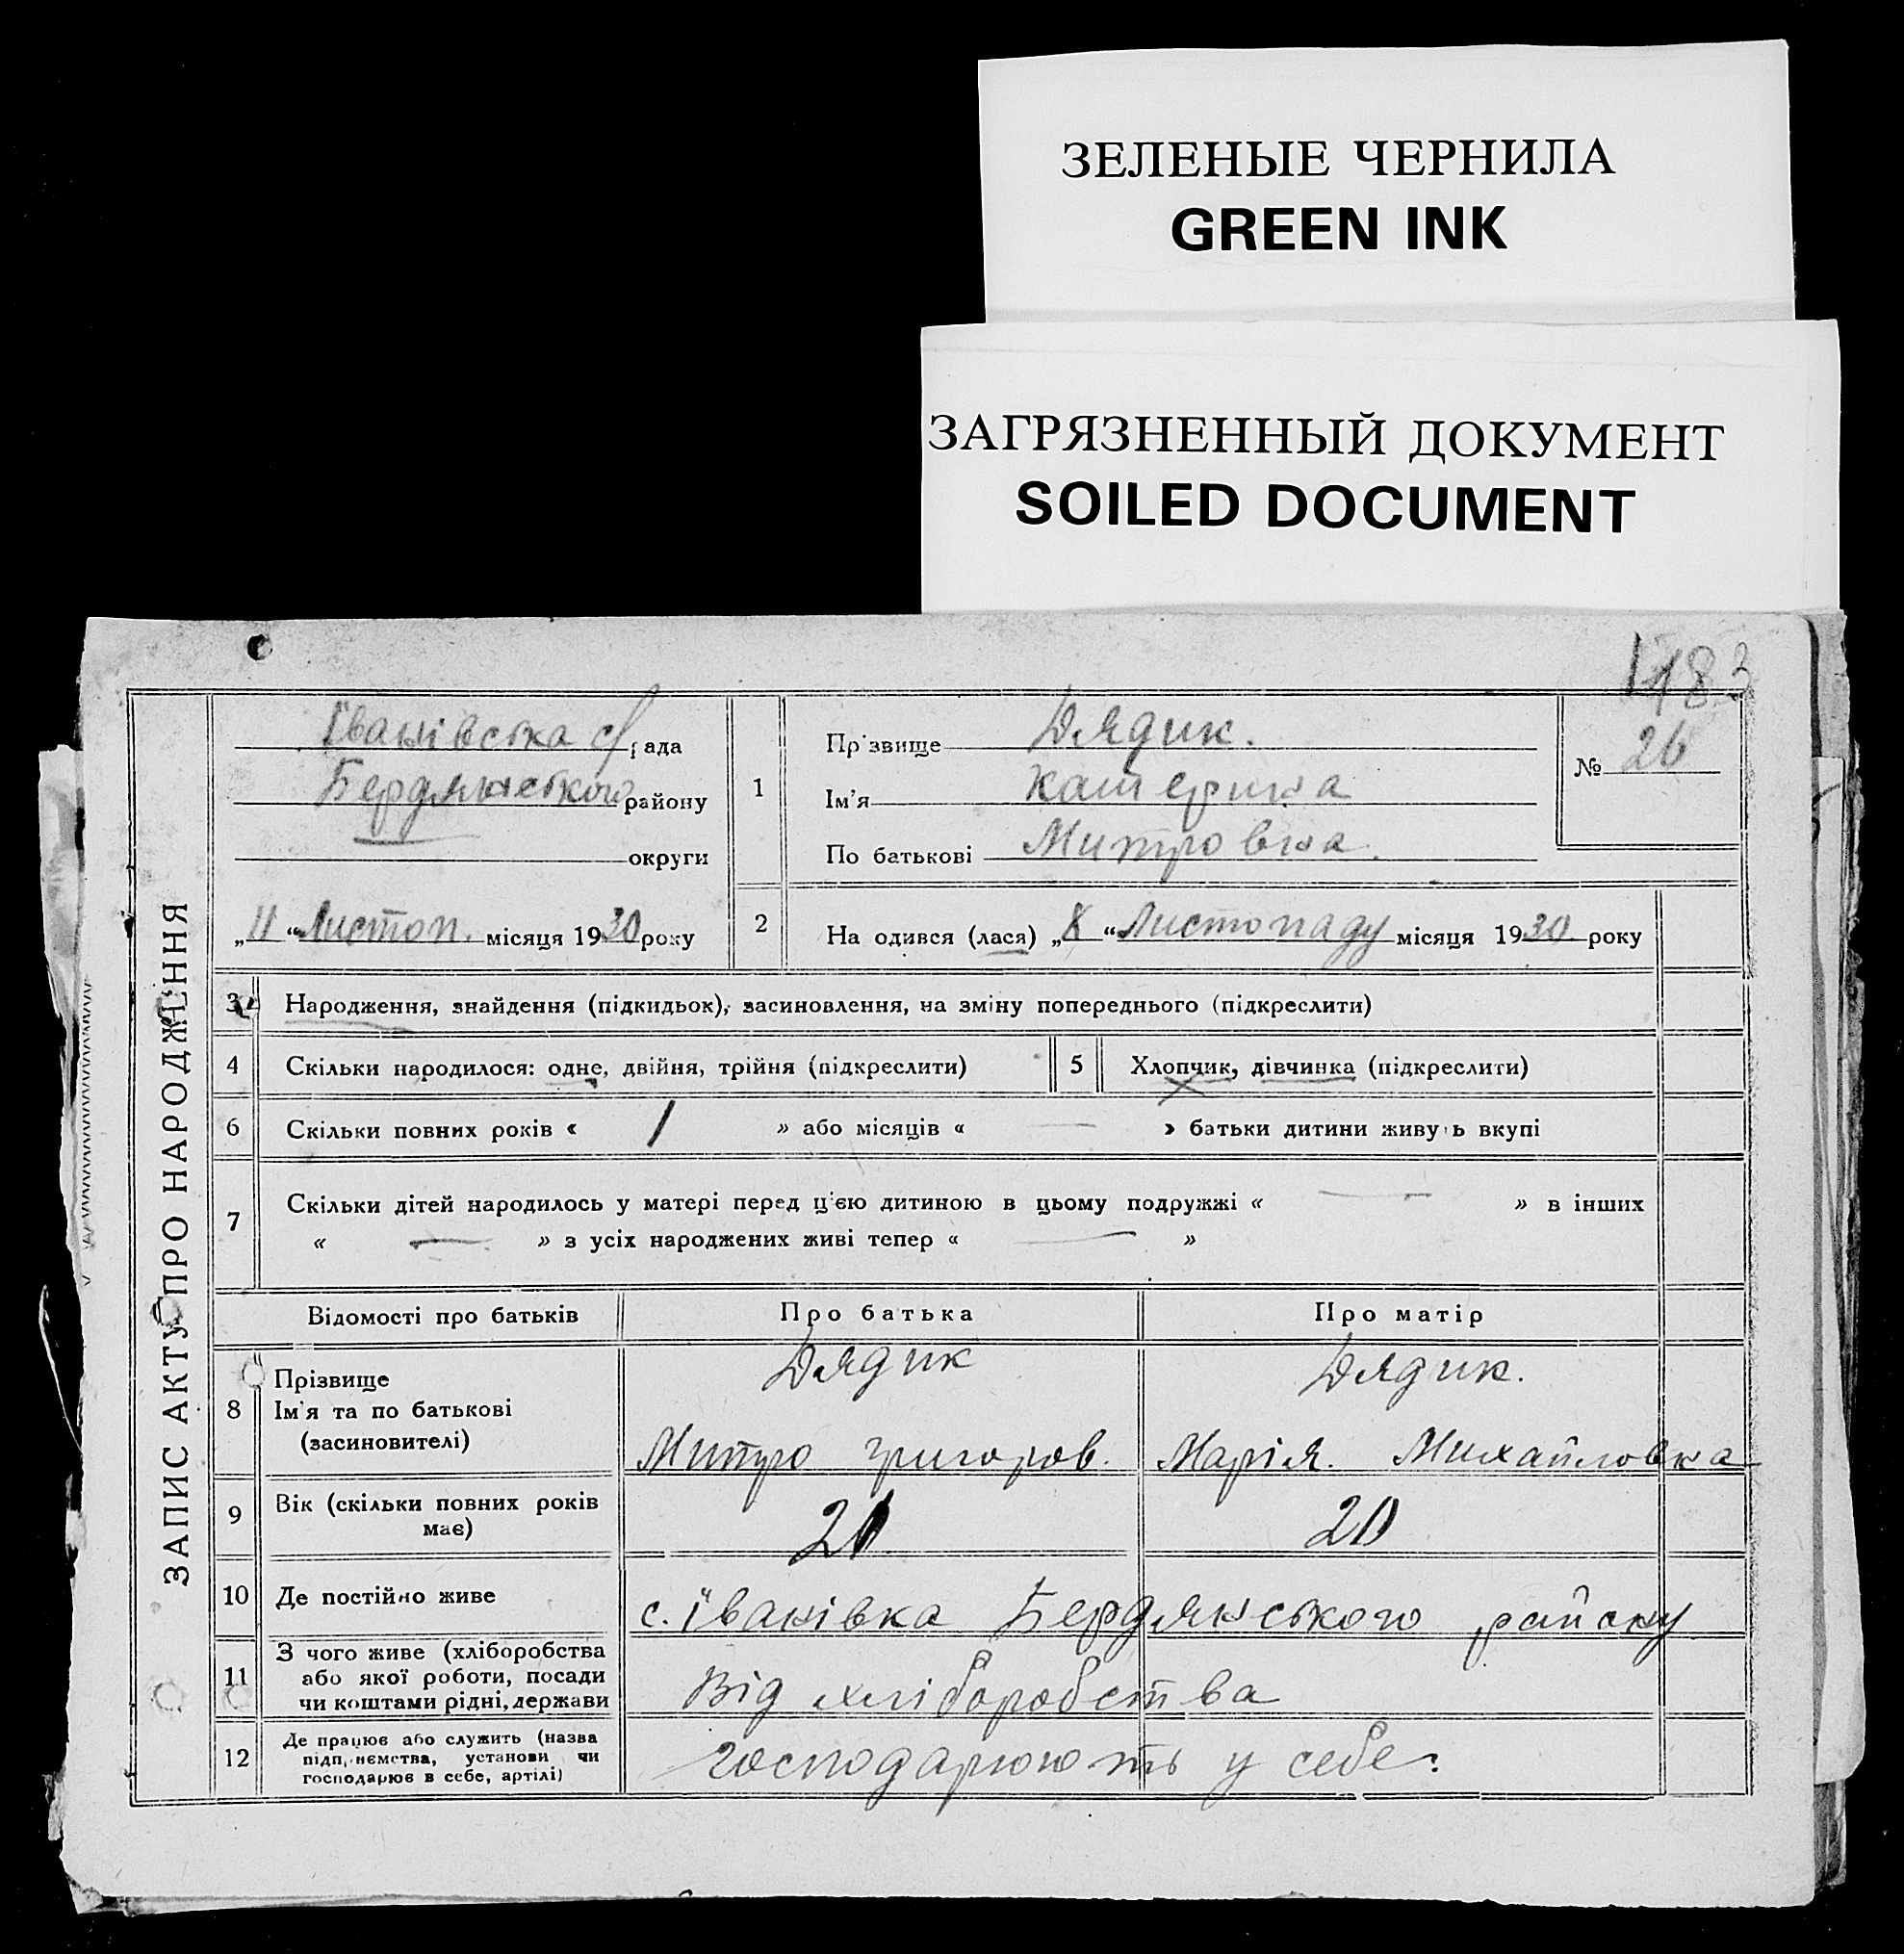 ЗЕЛЕНЫЕ ЧЕРНИЛА
GREEN INK
ЗАГРЯЗНЕННЫЙ ДОКУМЕНТ
SOILED DOCUMENT
183
ЗАПИС АКТУ ПРО НАРОДЖЕННЯ
Іванівська с/рада
Бердянського району
округи
„11“ Листоп. місяця 1930 року
1
Прізвище Дядик.
Ім'я Катерина
По батькові Митровна.
№ 26
2
На одився (лася) „8“ Листопаду місяця 1930 року
3 Народження, знайдення (підкидьок), засиновлення, на зміну попереднього (підкреслити)
4 Скільки народилося: одне, двійня, трійня (підкреслити)
5 Хлопчик, дівчинка (підкреслити)
6 Скільки повних років « 1 » або місяців « — » батьки дитини живуть вкупі
7 Скільки дітей народилось у матері перед ц'єю дитиною в цьому подружжі « — » в інших
« — » з усіх народжених живі тепер « — »
Відомості про батьків Про батька Про матір
8 Прізвище
Ім'я та по батькові
(засиновителі)
Дядик
Митро Григоров.
Дядик.
Марія. Михайловна
9 Вік (скільки повних років
має)
21 20
10 Де постійно живе с. Іванівка Бердянського району
11 З чого живе (хліборобства
або якої роботи, посади
чи коштами рідні, держави
Від хліборобства
12 Де працює або служить (назва
підп, немства, установи чи
господарює в себе, артілі)
господарюють у себе.